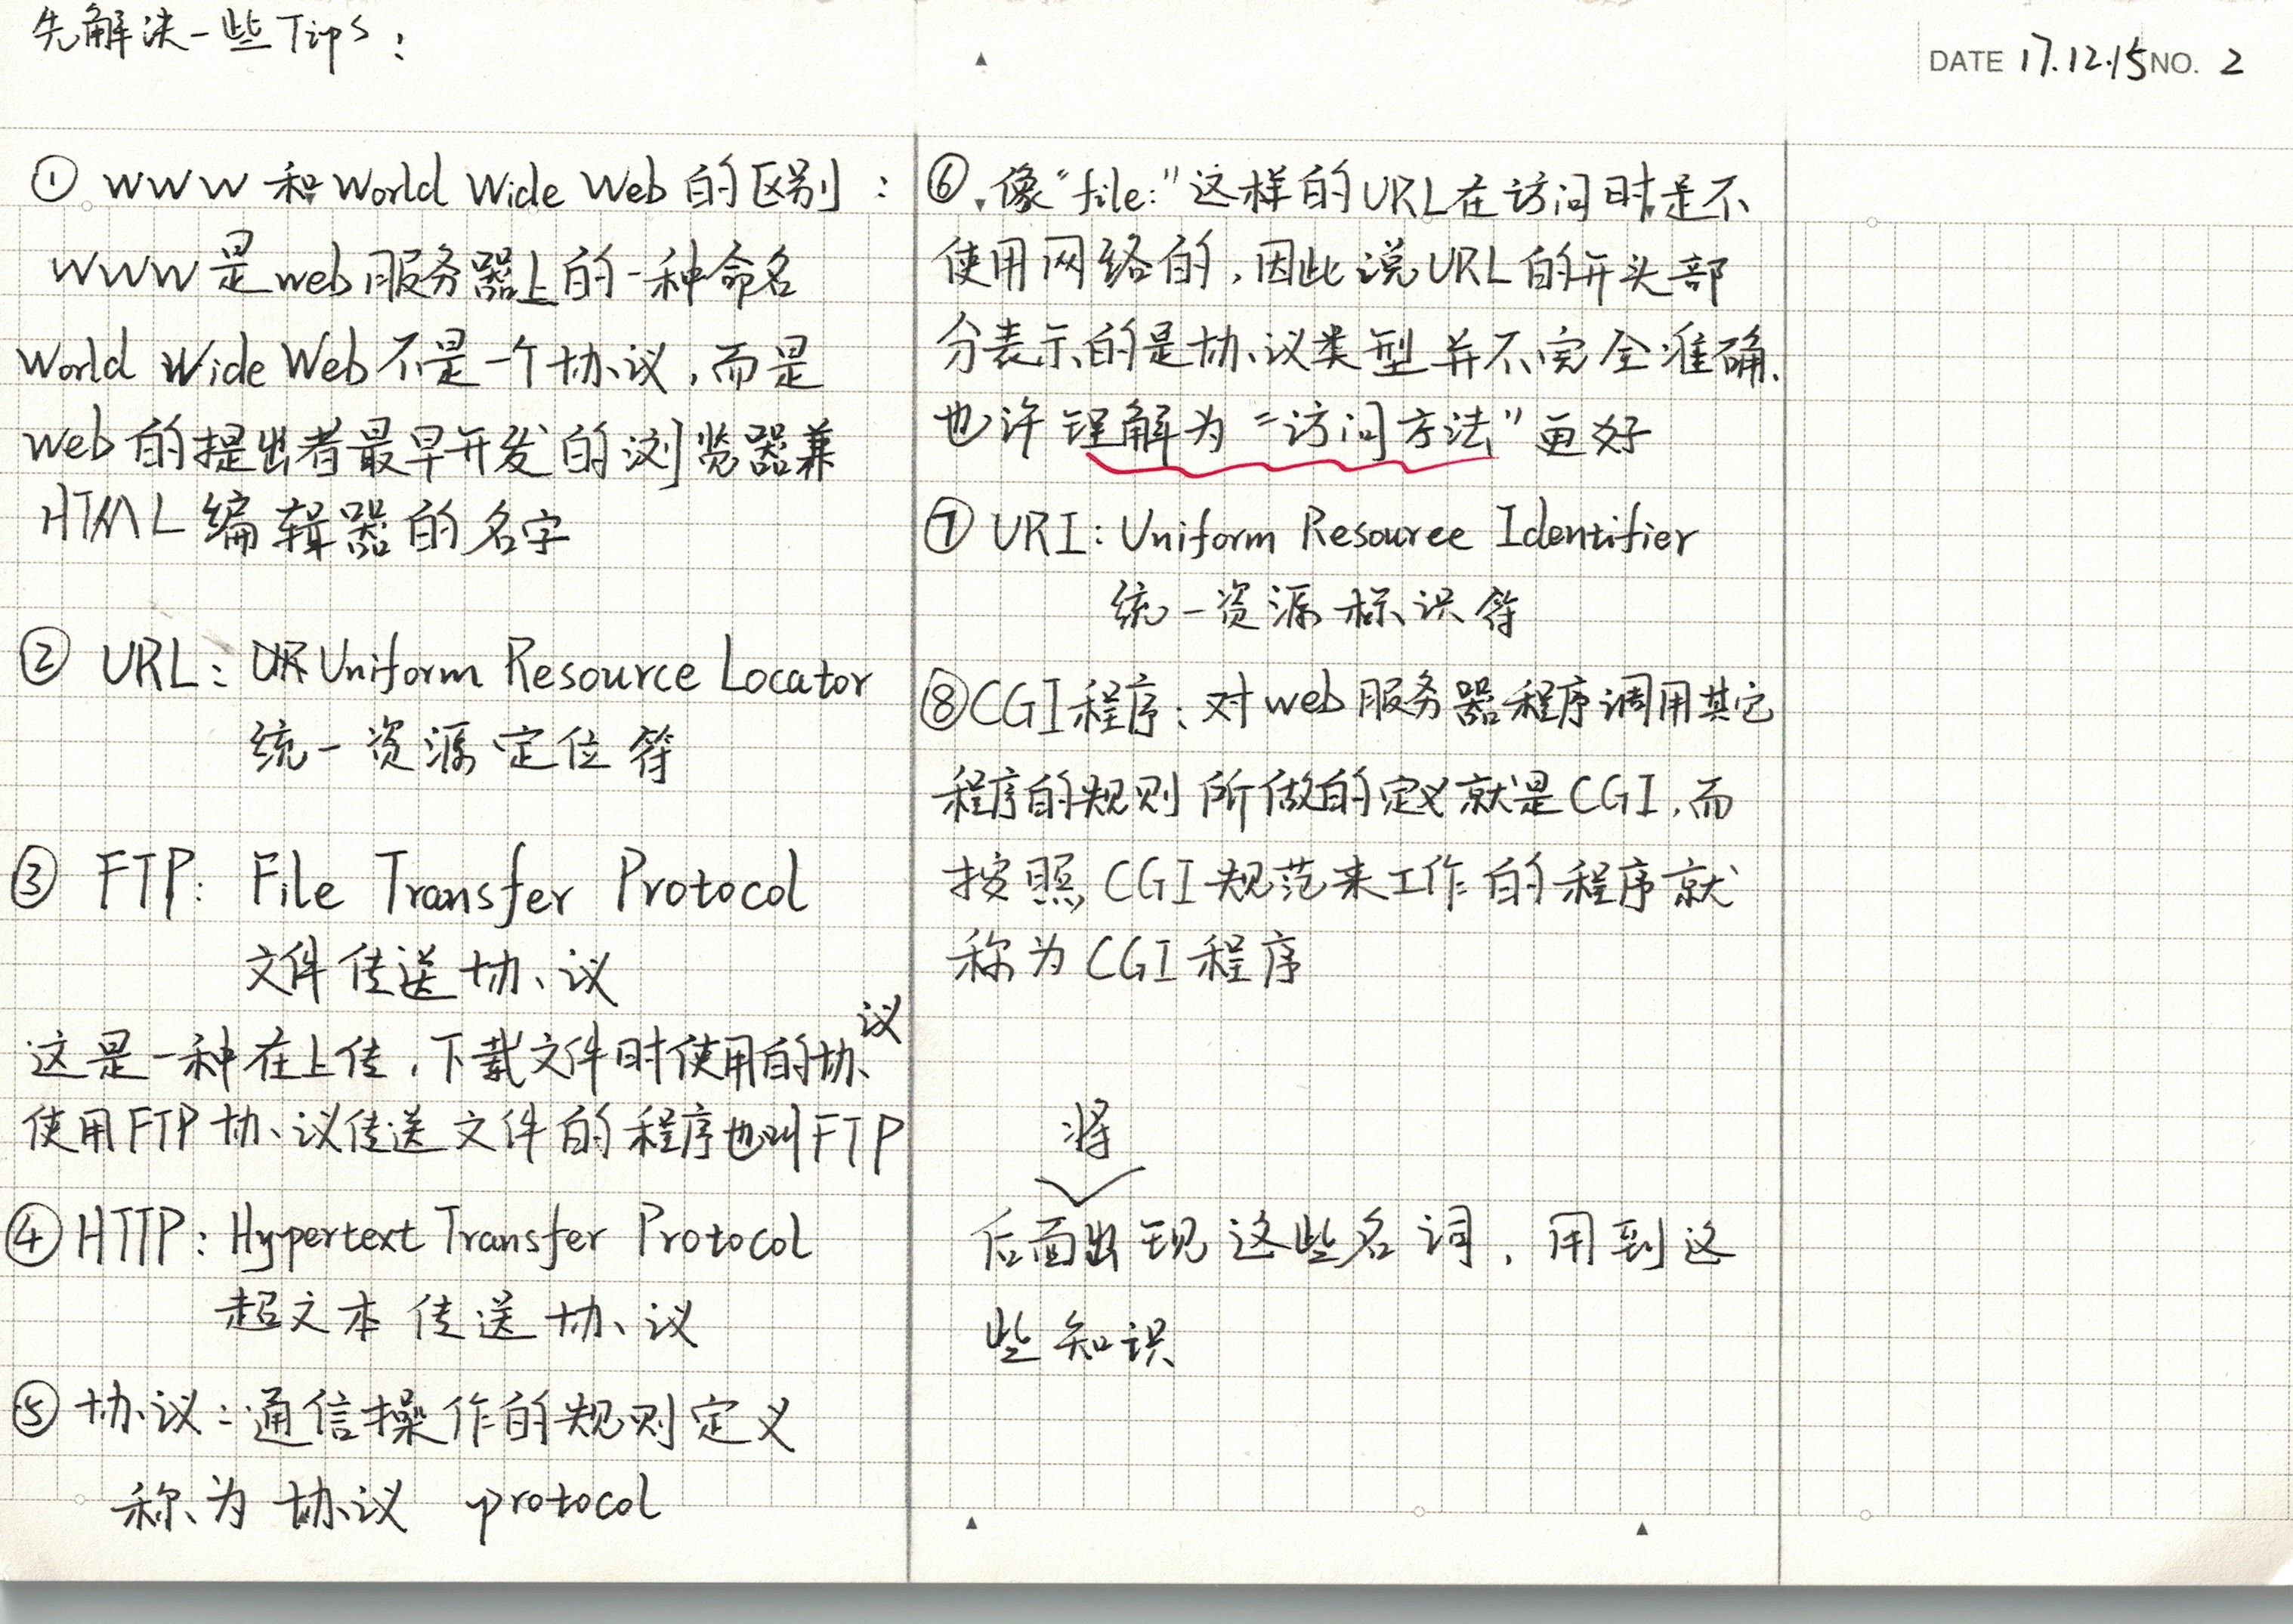 先解决一些Tips:
DATE 17.12.15 NO. 2
① WWW 和 World Wide Web 的区别:
WWW是web服务器上的一种命名
World Wide Web 不是一个协议,而是
web的提出者最早开发的浏览器兼
HTML编辑器的名字
② URL: Uniform Resource Locator
统一资源定位符
③ FTP: File Transfer Protocol
文件传送协议
这是一种在上传,下载文件时使用的协议
使用FTP协议传送文件的程序也叫FTP
④ HTTP: Hypertext Transfer Protocol
超文本传送协议
⑤ 协议:通信操作的规则定义
称为协议 protocol
⑥ 像“file:”这样的URL在访问时是不
使用网络的,因此说URL的开头部
分表示的是协议类型并不完全准确.
也许理解为“访问方法”更好
⑦ URI: Uniform Resource Identifier
统一资源标识符
⑧CGI程序:对web服务器程序调用其它
程序的规则所做的定义就是CGI,而
按照CGI规范来工作的程序就
称为CGI程序
将
后面出现这些名词,用到这
些知识